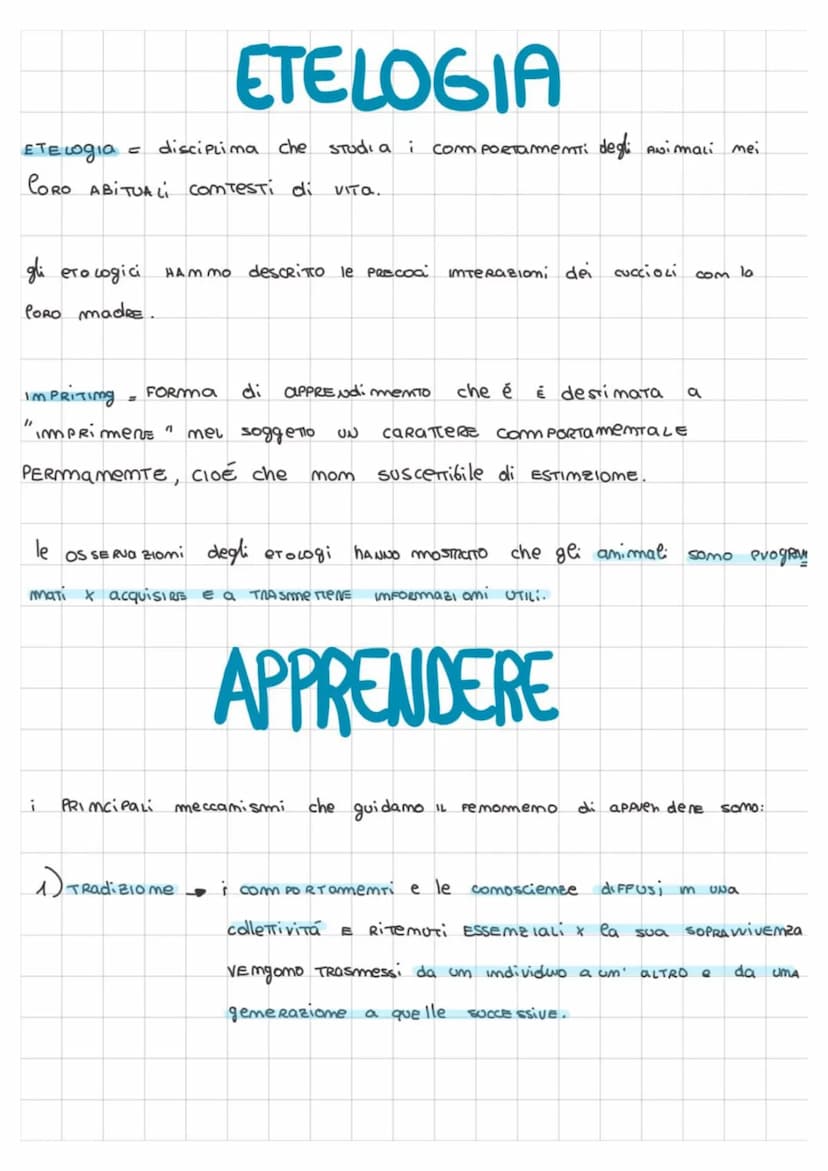 ETELOGIA
ETELOGIA = disciplina che studia i comportamenti degli animali nei
loro abituali contesti di vita.
gli etologici hanno descritto le precoci interazioni dei cuccioli con la
loro madre.
IMPRITING = forma di apprendimento che é é destinata a
"imprimere" nel soggetto un carattere comportamentale
permanente, cioé che non suscettibile di estinzione.
le osservazioni degli etologi hanno mostrato che gli animali sono program
mati x acquisire e a trasmettere informazioni utili.
APPRENDERE
i principali meccanismi che guidano il fenomeno di apprendere sono:
1) Tradizione → i comportamenti e le conoscienze diffusi in una
collettivitá e ritenuti essenziali x la sua sopravvivenza
vengono trasmessi da un individuo a un' altro e da una
generazione a quelle successive.